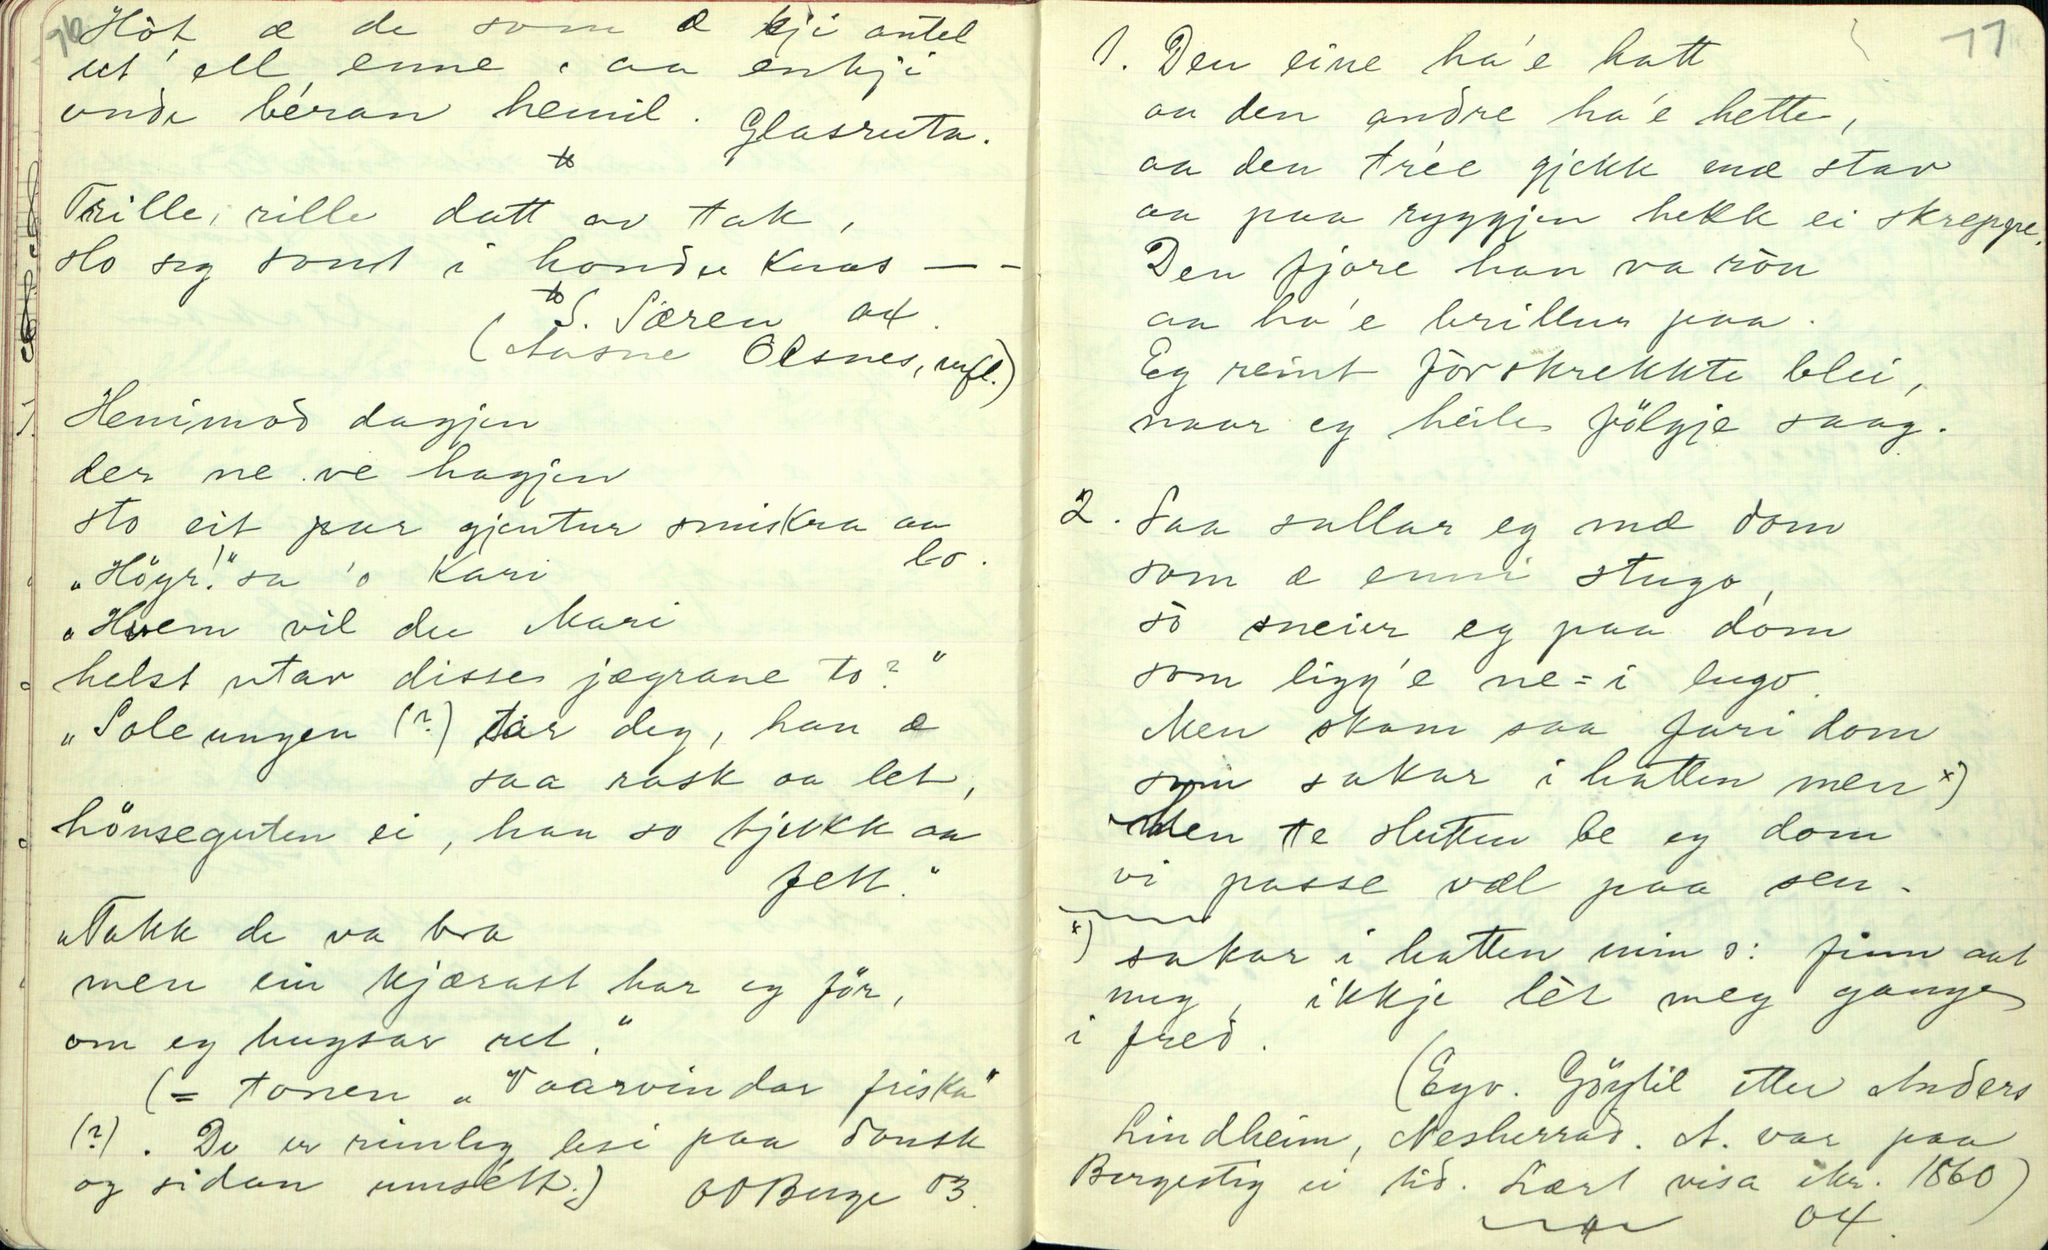 90
Hòt æ de som æ kji antel
ut' ell enne, aa enkji
onde béran hemil.
Glasruta.
Trille, rille datt av tak,
slo seg sont i hondre knas — -
S. Særen 04.
(Aasne Olsnes, mfl.)
Henimod dagjen
der ne ve hagjen
sto eit par gjentur smiskra aa
lo.
"Höyr!" sa 'o Kari
"Hvem vil du Mari
helst utav disse jægrane to?"
"Soleungen (?) tar deg, han æ
saa rask aa let,
hönseguten ei, han so tjukk aa
fett."
"Takk de va bra
men ein kjærast har eg för,
om eg hugsar ret."
(= tonen "Vaarvindar friska"
(?). De er rimleg lesi paa dansk
og sidan umsétt.) OOBerge 03.
11
1. Den eine ha'e hatt
aa den andre ha'e hette,
aa den trée gjekk mæ stav
aa paa ryggjen hekk ei skreppe.
Den fjore han va rön
aa ha'e brillur paa.
Eg reint förskrekkte blei,
naar eg heile fölgje saag.
2. Saa sullar eg mæ dom
som æ enni stugo,
so sneier eg paa dom
som ligg'e ne=i lugo.
Men skam saa fari dom
som sakar i hatten men x)
Men te slutten be eg dom
vi passe væl paa sen.
x) sakar i hatten min ɔ: finn aat
meg, ikkje lèt meg gange
i fred.
(Egv. Göytil etter Anders
Lindheim, Nesherrad. A. var paa
Borgestig ei tid. Lært visa ikr. 1860)
04.